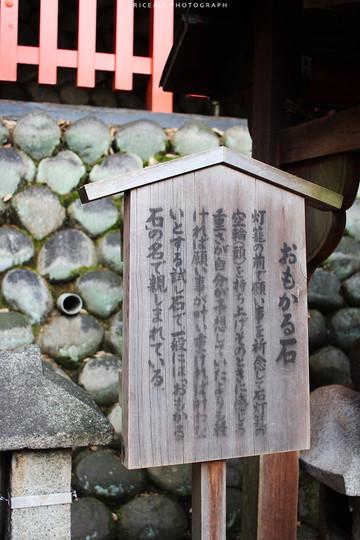 RICEALL PHOTOGRAPH
おもかる石
灯籠の前で願い事を祈念して石灯籠の
空輪(頭)を持ち上げ、そのときに感じる
重さが、自分が予想していたよりも軽
ければ願い事が叶い、重ければ叶わな
いとする試し石で、一般には「おもかる
石」の名で親しまれている。